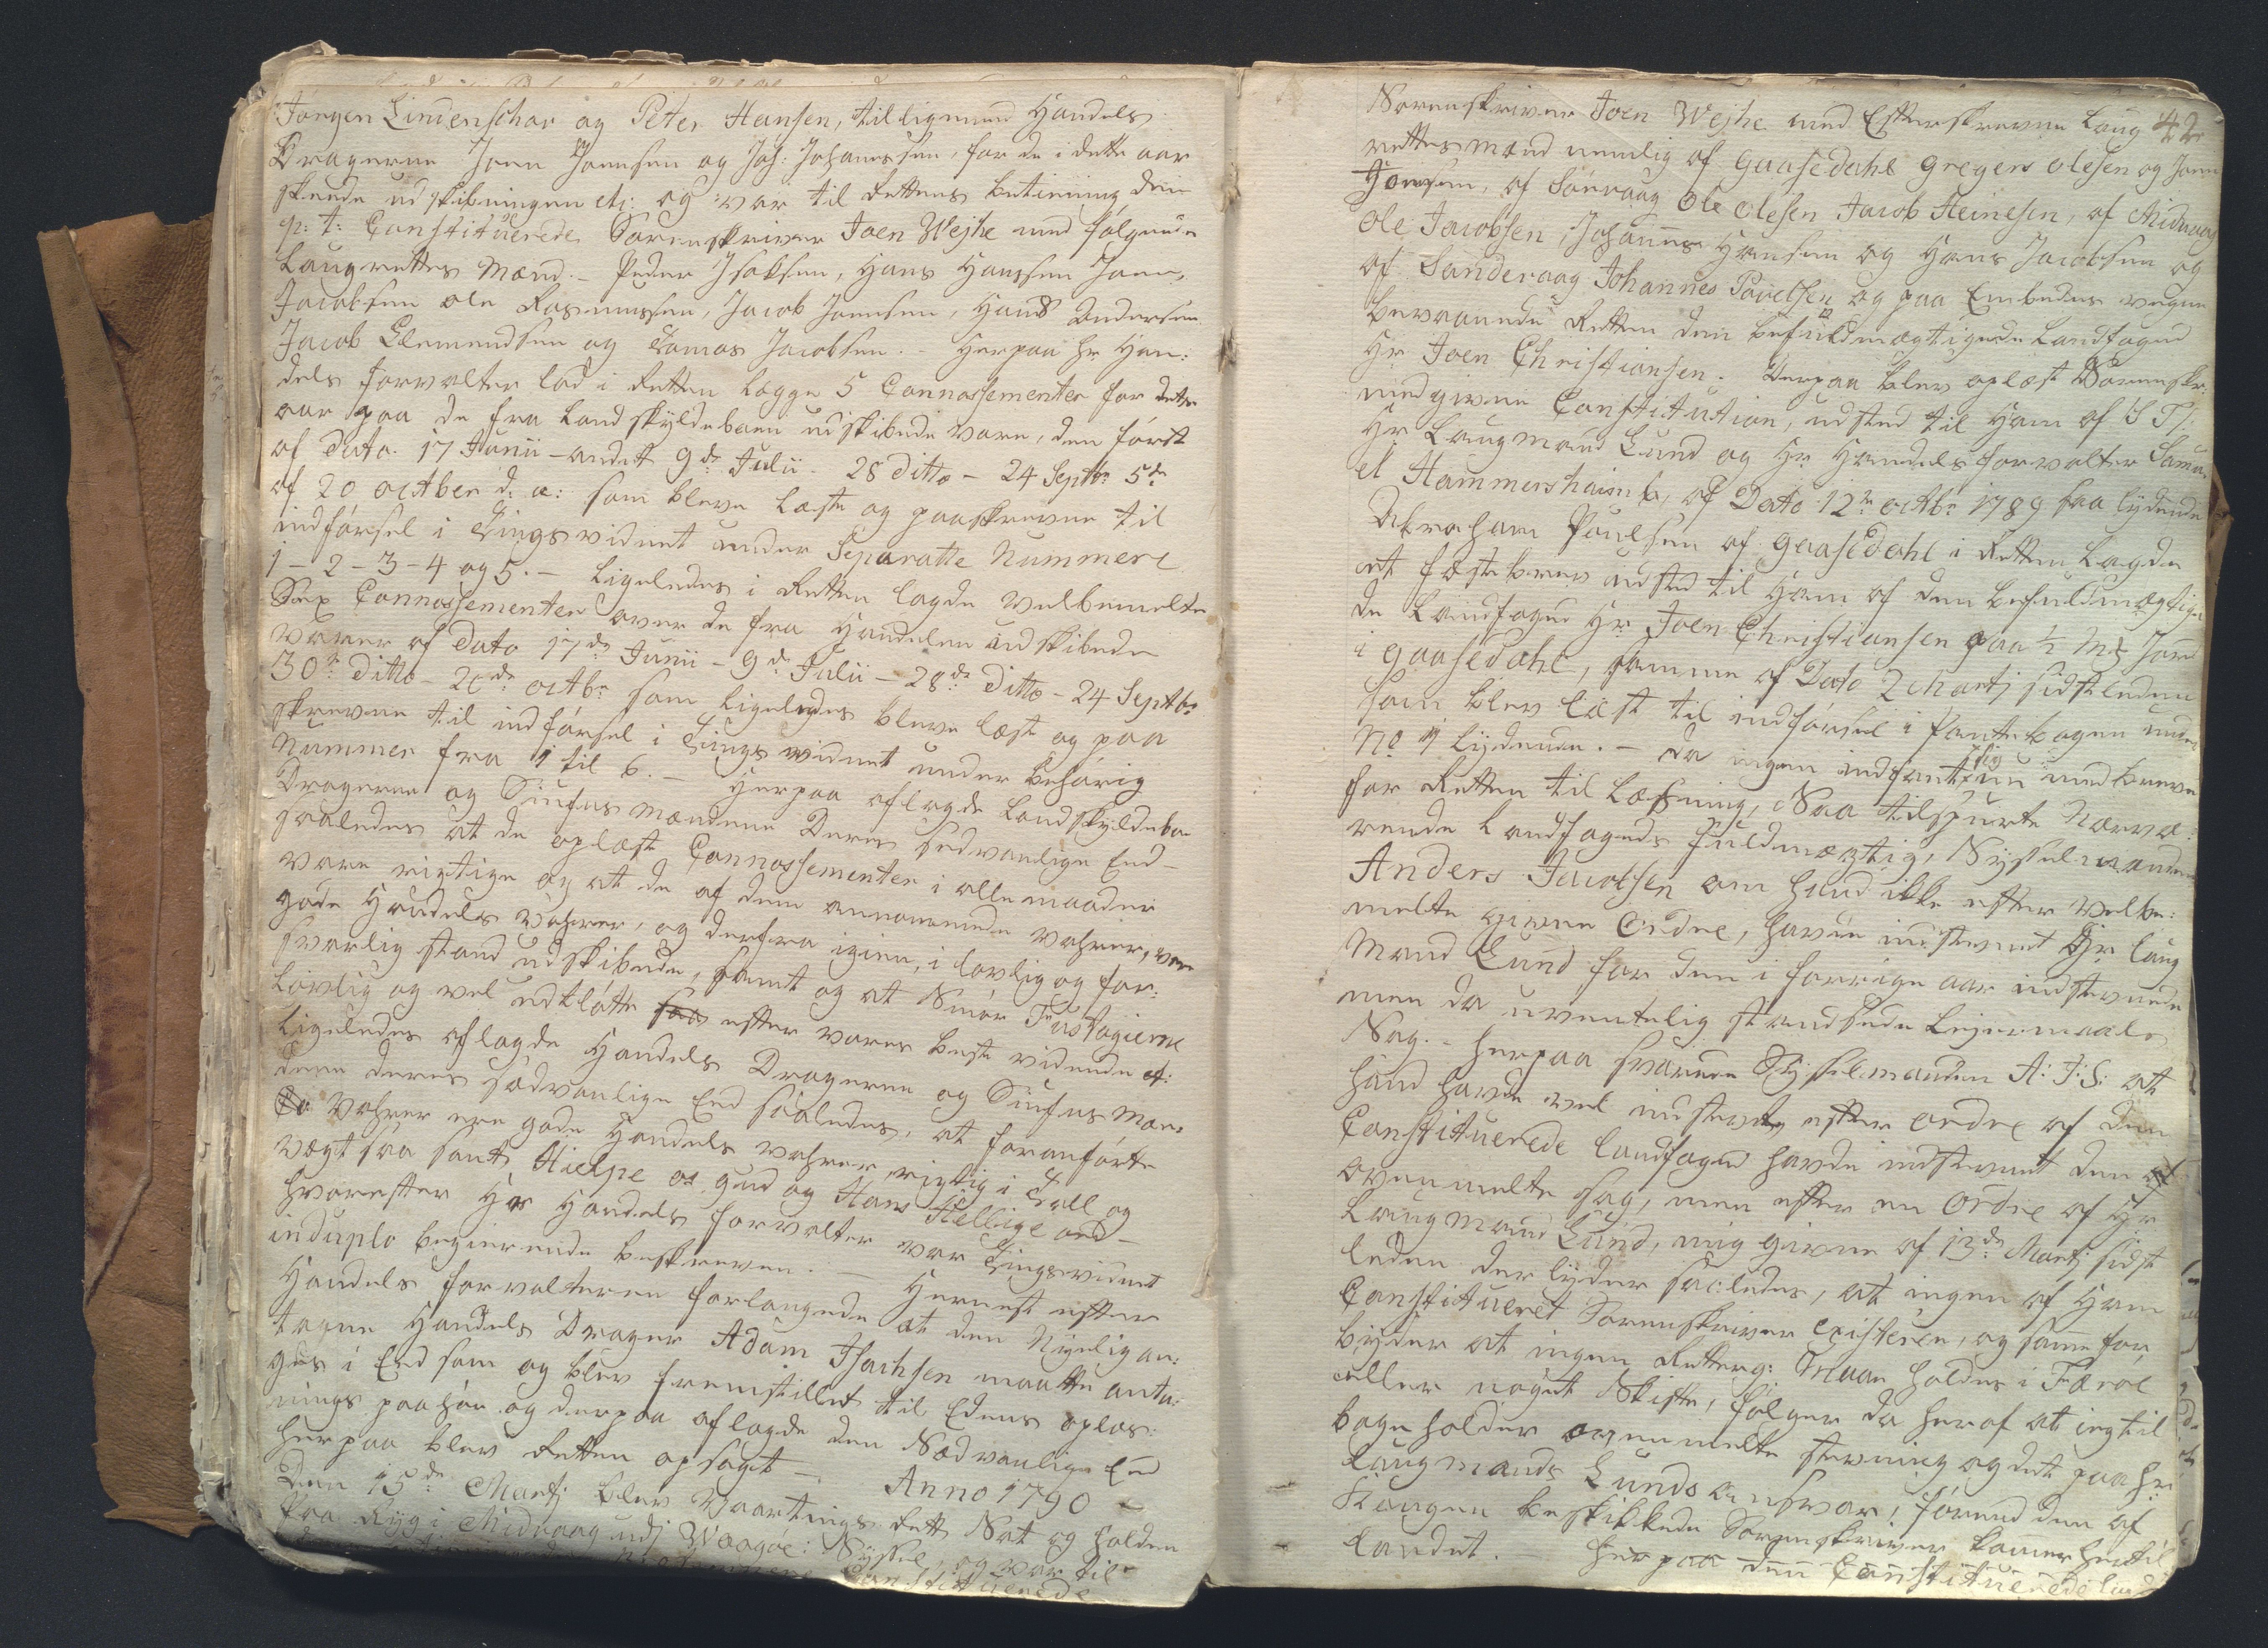 Jørgen Lindenschov og Peter Hansen, tilligemed Handels
Dragerne Joen Joensen og Joh: Johannessen, for de i dette aar
skeede udskibningen etc: og var til Rettens betiening den
p: t: Constituerede Sorenskriver Joen Wejhe med følgende
Laugrettes Mænd. – Peder Isaksen, Hans Hanssen Joen
Jacobsen Ole Rasmussen, Jacob Joensen, Hans Andersen
Jacob Clemendsen og Tomas Jacobsen. – Herpaa hr Han:
dels forvalter lod i Retten lægge 5 Connossementer for dette
aar paa de fra Landskyldboen udskibede vare, den første
af Dato 17 Junii – andet 9de Julii – 28 Ditto – 24 Septbr 5te
af 20 octber d: a: som bleve læste og paaskrevne til
indførsel i Tingsvidnet under Separatte Nummere
1 – 2 – 3 – 4 og 5. – Ligeledes i Retten lagde velbemelte
Sex Connossementer over de fra Handelen udskibede
Varer af Dato 17de Junii – 9de Julii – 28de Ditto – 24 Septbr
30te Ditto – 20de octbr som ligeledes bleve læst og paa
skrevne til indførsel i Tings vidnet under behørig
Nummer fra 1 til 6. – Herpaa aflagde Landskyldboe
Dragerne og Siufns mændene Deres sædvanlige Eed –
saaledes at de oplæste Connossementer i alle maader
vare rigtige og at de af dem annammede Vahrer, vare
gode Handels Vahrer, og derfra igien, i lovlig og for:
svarlig stand udskibede, samt og at Smør Fustagierne
Lovlig og vel udkløtte efter vores beste vidende
Ligeledes aflagde Handels Dragerne og Siufns mæn:
dene deres sædvanlige Eed saaledes, at foranførte
Vahrer ere gode Handels vahrer rigtig i Tall og
vægt saa sant Hielpe os gud og Hans Hellige ord –
hvorefter Hr Handels forvalter var Tingsvidnet
induplo begierende beskreven. – Hernest efter
Handels forvalteren forlangede at den Nyelig an:
tagne Handels Drager Adam Isachsen maatte anta:
ges i Eed som og blev fremstillet til Edens oplæs:
nings paahør og derpaa aflagde den Sædvanlige Eed
herpaa blev Retten opsagt – Anno 1790 –
Den 15de Martj blev Vaartings Rett Sat og holden
paa Ryg i Midvaag udj Waagøe: Syssel, og var til
Constituerede
42
Sorenskriver Joen Wejhe med Efterskrevne Laug
rettesmænd nemlig af Gaasedahl Gregers Olesen og Joen
Hansen, af Sørvaag Ole Olesen Jacob Heinesen, af Midvaag
Ole Jacobsen, Johannes Hansen og Hans Jacobsen og
af Sandevaag Johannes Pouelsen og paa Embedes vegne
bevaanede Retten den befuldmægtigede Landfoged
Hr Joen Christiansen. Derpaa blev oplæst Sorenskr:
medgivne Constitution, udsted til Ham af S T:
Hr Laugmand Lund og Hr Handels forvalter Samu
el Hammershaimb, af Dato 12te octbr 1789 saa lydende
Abraham Poulsen af Gaasedahl i Retten lagde
et fæstebrev udsted til Ham af den befuldmægtige
de Landfoged Hr Joen Christiansen paa ½ Mk Jord
i Gaasedahl, samme af Dato 2 Martj sidstleden
som blev læst til indførsel i Pantebogen under
No 1 lydende. – da ingen indfant sig nu med breve
for Retten til Læsning, Saa tilspurte Nærvæ:
rende Landfogeds fuldmægtig, Sysselmanden
Anders Jacobsen om hand ikke efter velbe:
melte givne Ordre, havde indstevnet Hr Laug
Mand Lund for den i forrige aar indstevnede
men da uventelig standsede Leiermaals
Sag. – herpaa svarede Sysselmanden A: J:S: at
hand havde vel indstevnt efter ordre af den
Constituerede Landfoged havde indstevnet den
ovenmelte sag, men efter en Ordre af Hr
Laugmand Lund, mig givne af 13de Martj sidst
leden der lyder saaledes, at ingen af Ham
Constitueret Sorenskriver Existerer, og samme for
byder at ingen Retterg: Maae holdes i Færøe
eller noget Skifte, følger da heraf at ieg til
bage holder ovenmelte stevning og det paa Hr
Laugmands Lunds ansvar, førend den af
Kongen beskikkede Sorenskriver kommer hertil
Landet. – Herpaa den Constituerede Land